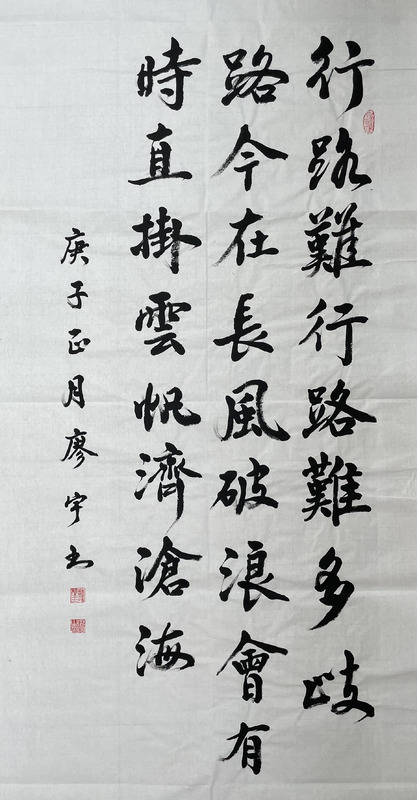 行路難行路難多歧
路今在長風破浪會有
時直掛雲帆濟滄海
庚子正月廖宇书